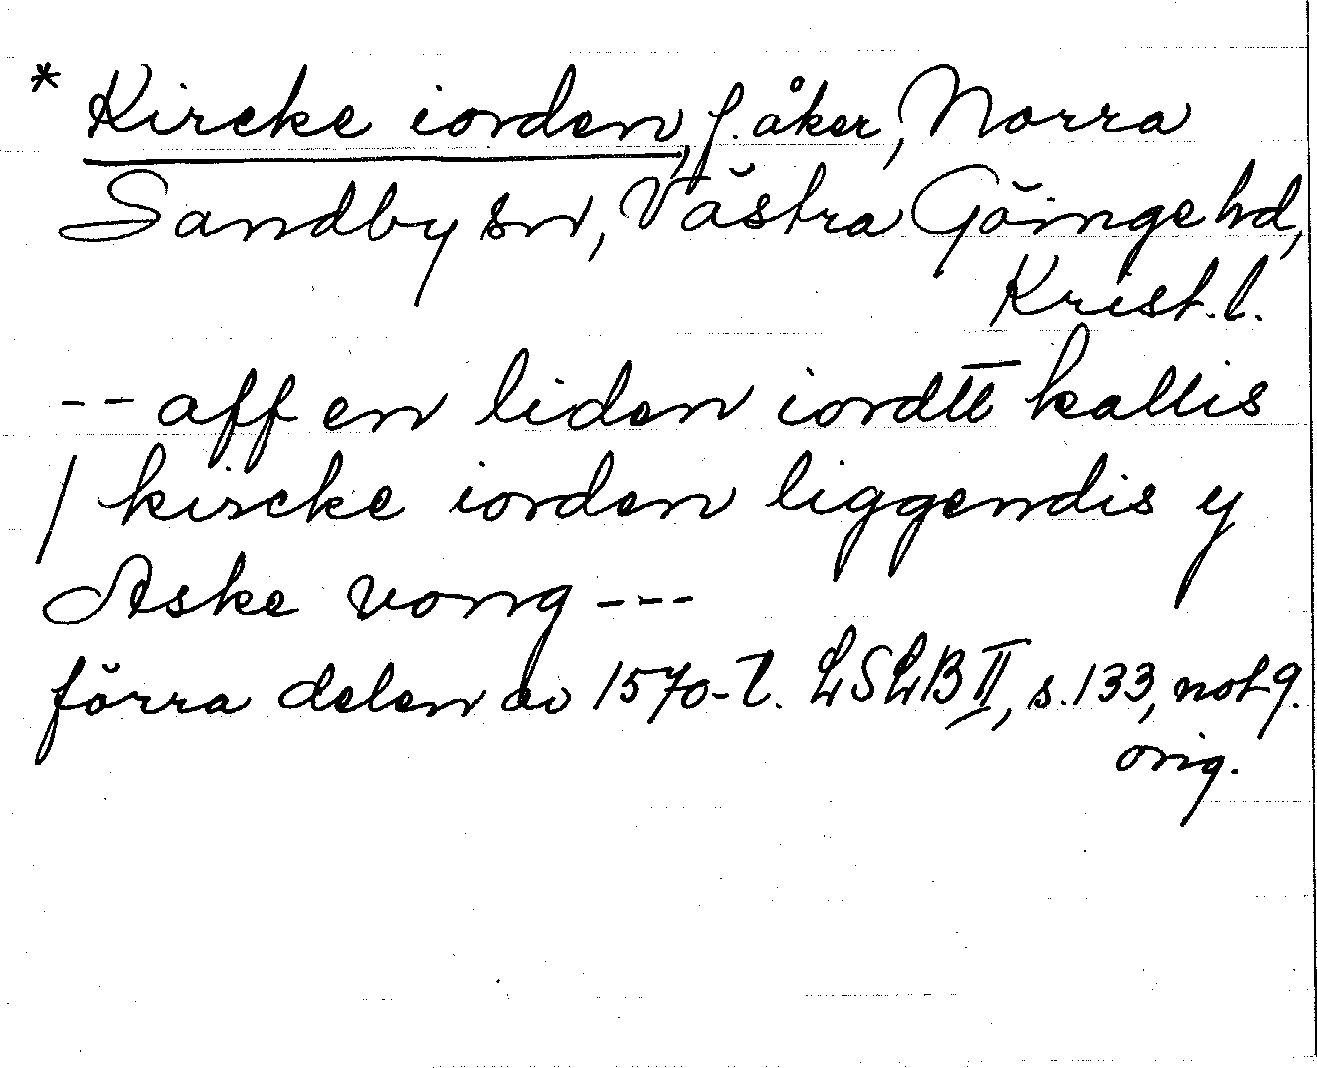 * Kircke iorden, f. åker, Norra
Sandby sn, Västra Göinge hd,
Krist. l.
-- aff en liden iordtt kallis
/ kircke iorden liggendis y
Aske vong ---
förra delen av 1570-t. LSLB II, s. 133, not 9.
orig.